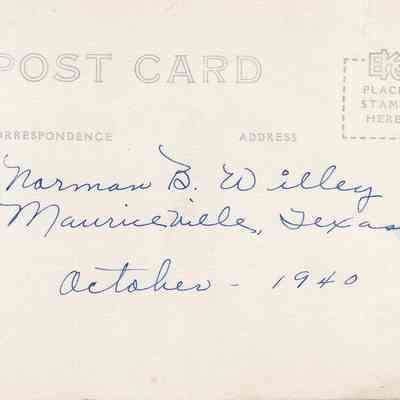 POST CARD
EKC
PLACE
STAMP
HERE
CORRESPONDENCE ADDRESS
Norman B. Willey
Mauriceville, Texas
October - 1940